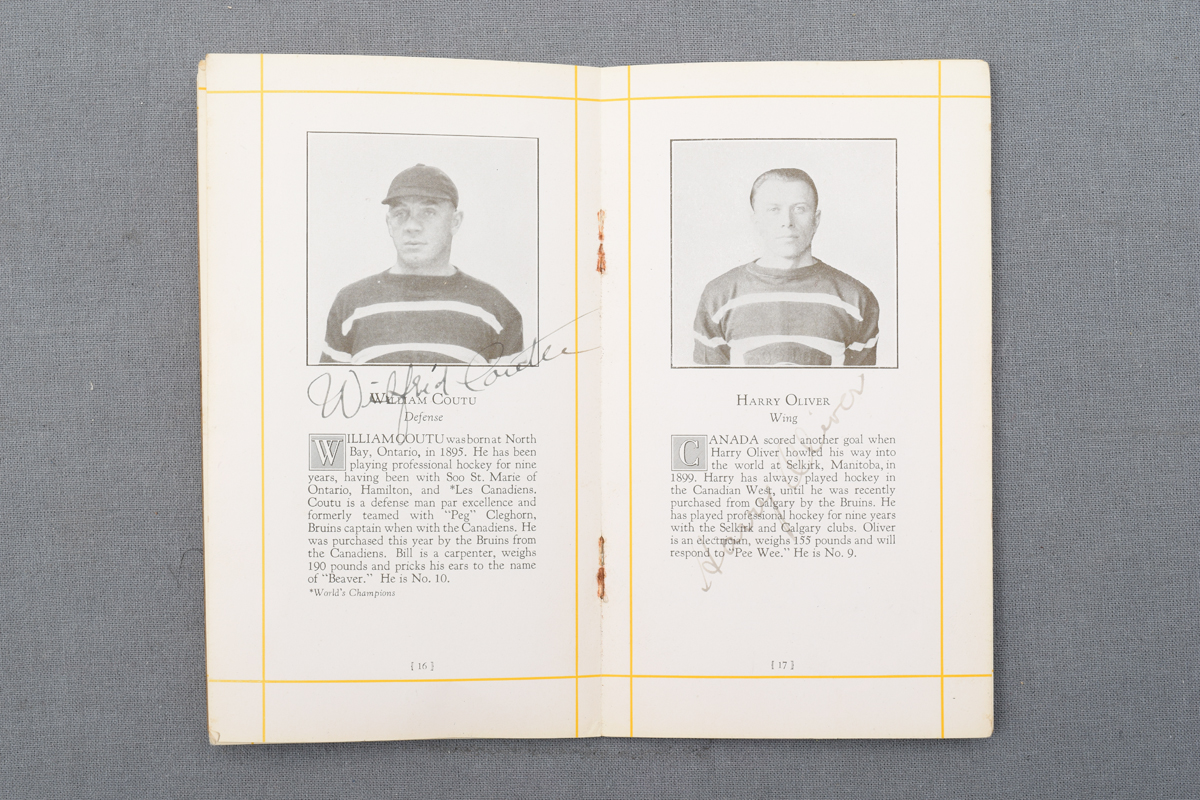 Wilfrid Coutu
WILLIAM COUTU
Defense
WILLIAM COUTU was born at North
Bay, Ontario, in 1895. He has been
playing professional hockey for nine
years, having been with Soo St. Marie of
Ontario, Hamilton, and *Les Canadiens.
Coutu is a defense man par excellence and
formerly teamed with "Peg" Cleghorn,
Bruins captain when with the Canadiens. He
was purchased this year by the Bruins from
the Canadiens. Bill is a carpenter, weighs
190 pounds and pricks his ears to the name
of "Beaver." He is No. 10.
*World's Champions
[16]
HARRY OLIVER
Wing
CANADA scored another goal when
Harry Oliver howled his way into
the world at Selkirk, Manitoba, in
1899. Harry has always played hockey in
the Canadian West, until he was recently
purchased from Calgary by the Bruins. He
has played professional hockey for nine years
with the Selkirk and Calgary clubs. Oliver
is an electrician, weighs 155 pounds and will
respond to "Pee Wee." He is No. 9.
Harry Oliver
[17]